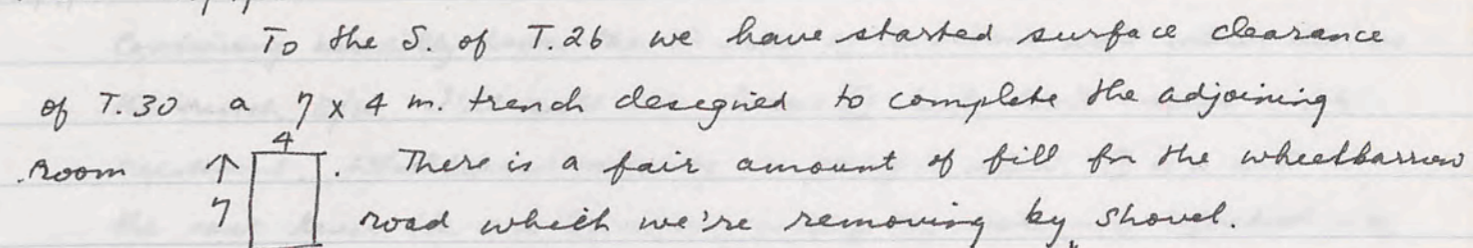 To the S. of T.26 we have started surface clearance
of T.30 a 7 x 4 m. trench desegined to complete the adjoining
room ↑ 4 . There is a fair amount of fill for the wheelbarrow
7 road which we're removing by shovel.